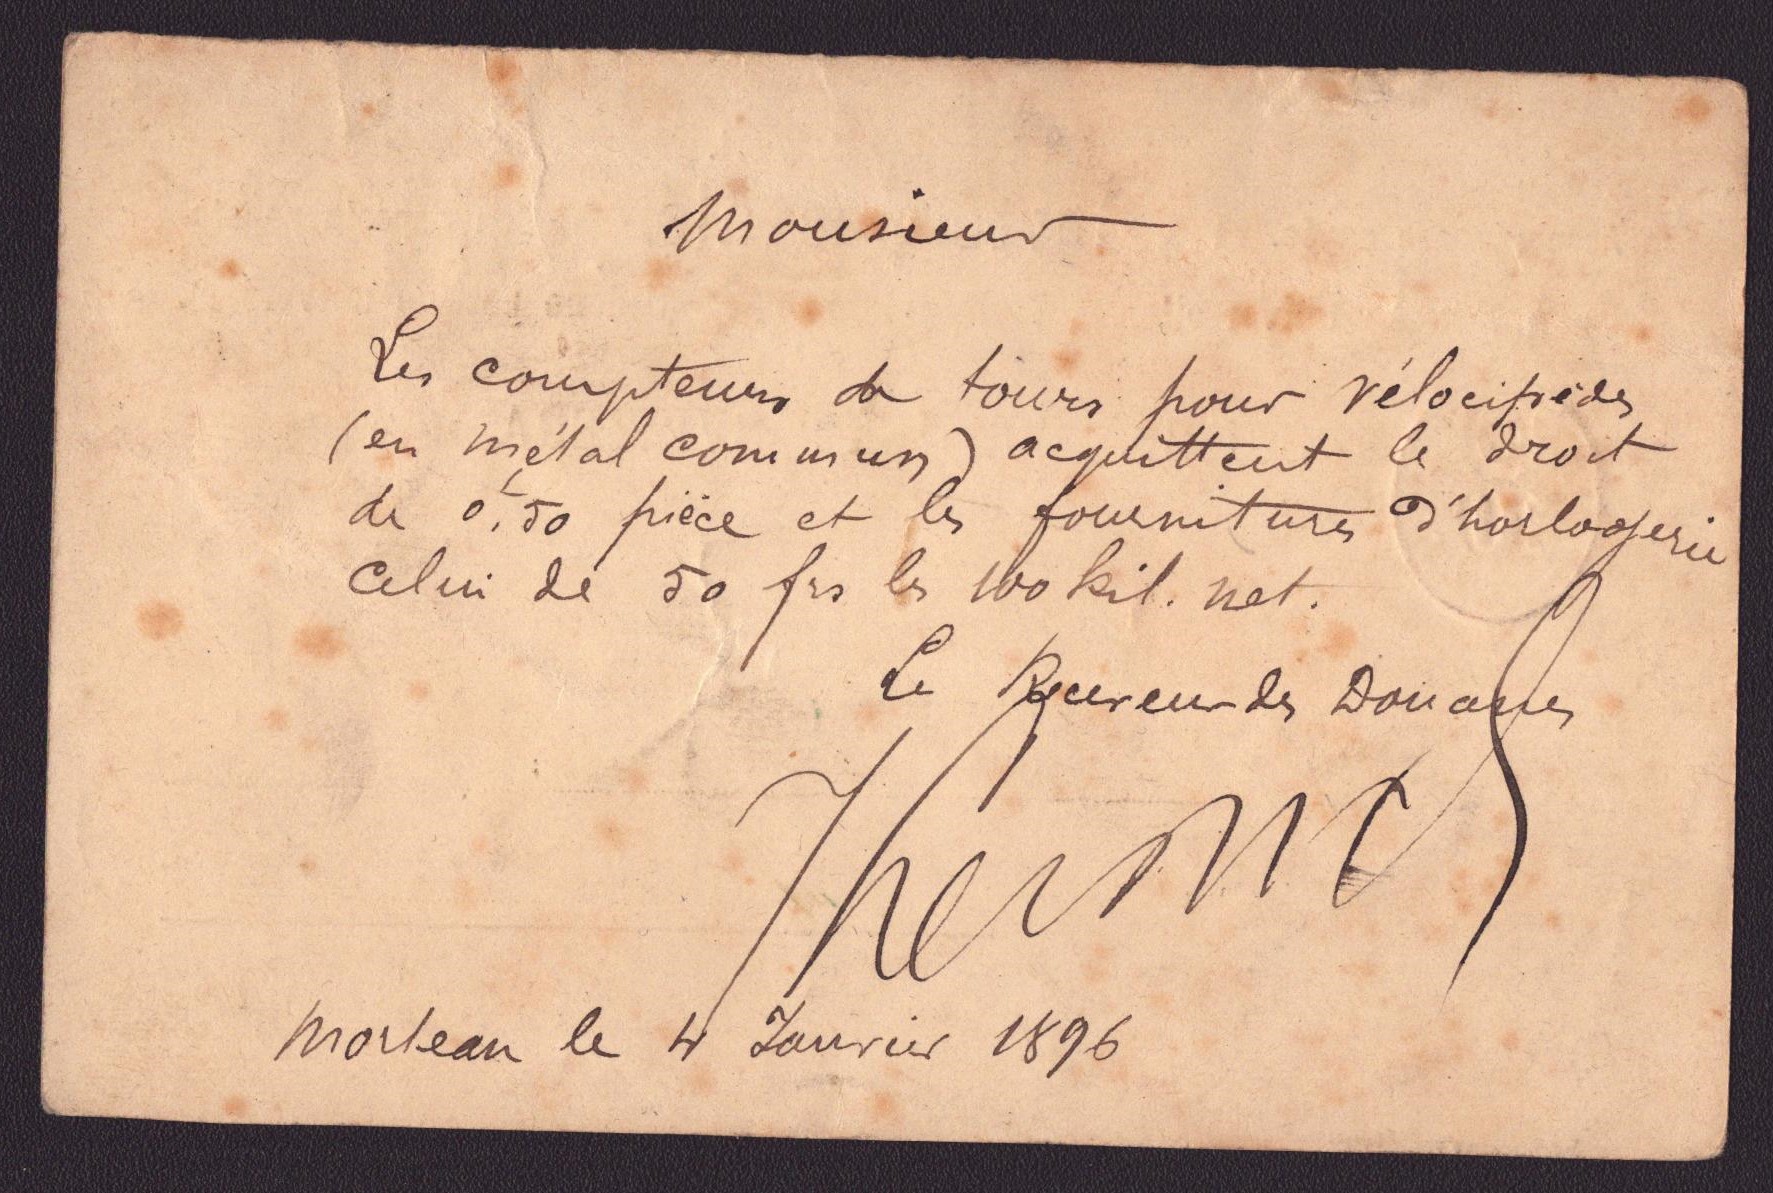 Monsieur
Les compteurs de tours pour vélocipèdes
(en métal commun) acquittent le droit
de 0f,50 pièce et les fournitures d'horlogerie
celui de 50 frs les 100 kil. net.
Le Receveur des Douanes
Morteau le 4 Janvier 1896